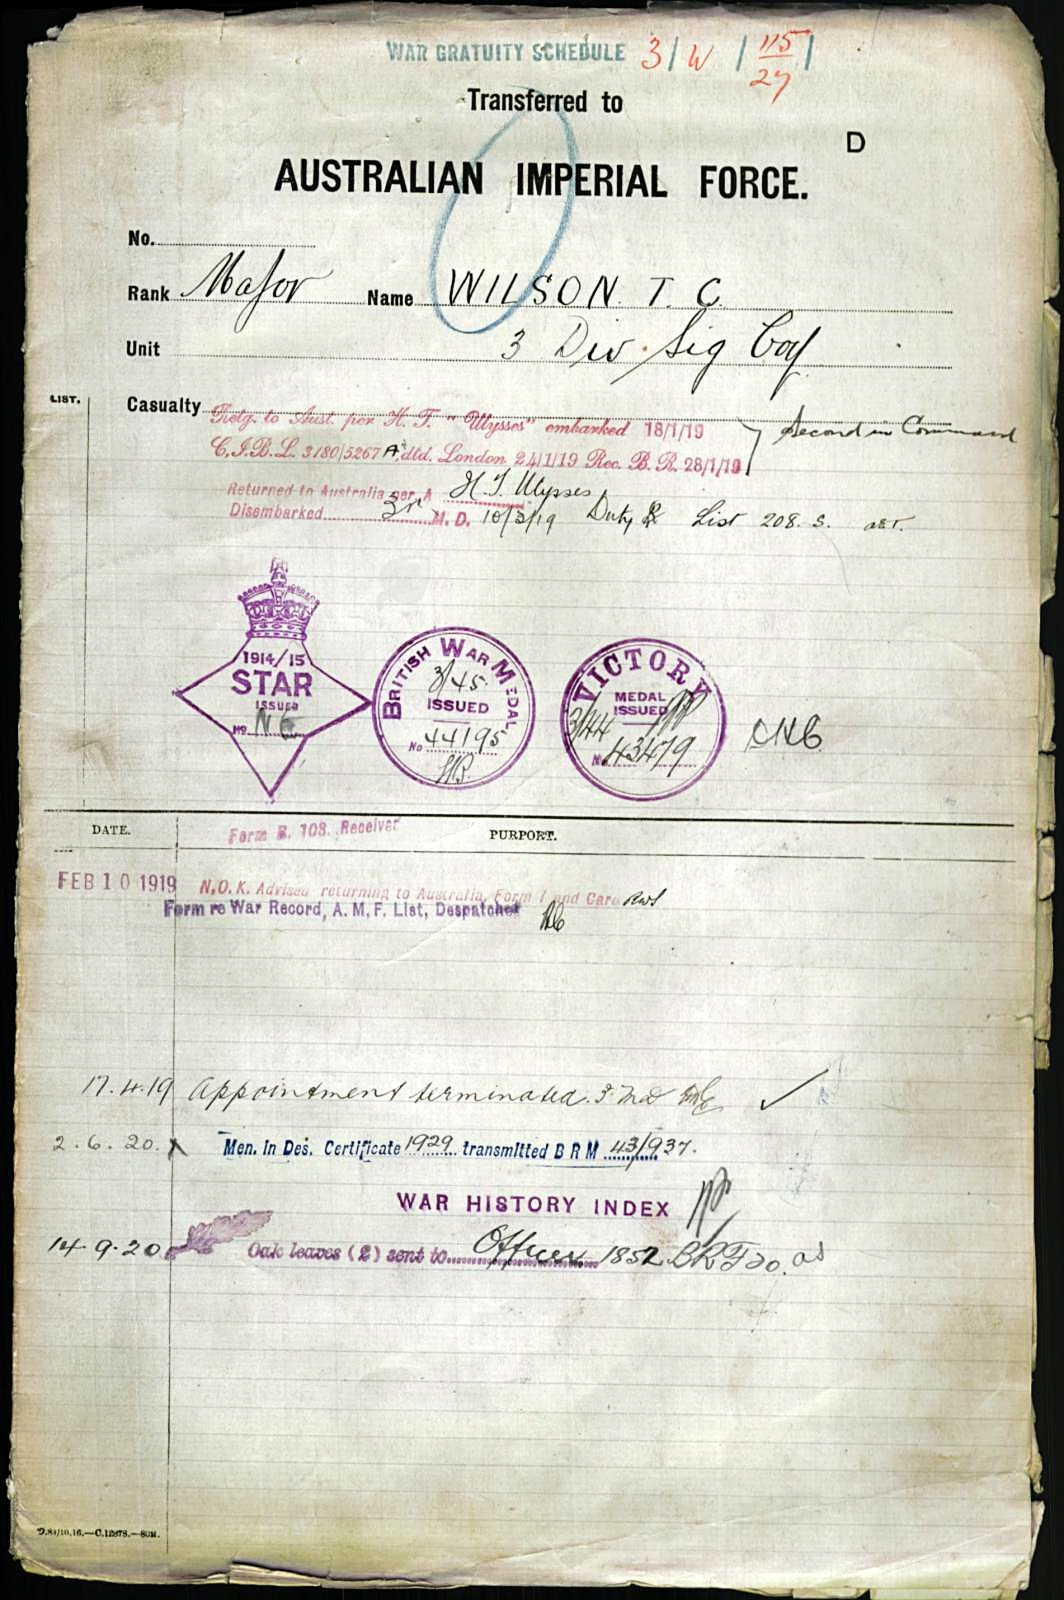 WAR GRATUITY SCHEDULE 3/W/115/27
Transferred to
D
AUSTRALIAN IMPERIAL FORCE.
No.
Rank Major Name WILSON. T. C.
Unit 3 Div. Sig Coy
LIST.
Casualty
Retg. to Aust. per H. T. "Ulysses" embarked 18/1/19 Second in Command
C.I.B.L. 3180/5267 dtd. London 24/1/19 Rec. B. R. 28/1/19
Returned to Australia per H.T. Ulysses
Disembarked 3rd M. D. 10/3/19 Duty List 208. S.
1914/15
STAR
ISSUED
No
BRITISH WAR MEDAL
3/45
ISSUED
No 44195
VICTORY
MEDAL
ISSUED
3/44
No 43419
DATE. Form B. 103. Receiver PURPORT.
FEB 10 1919 N.O.K. Advised returning to Australia, Form / and Card
Form re War Record, A. M. F. List, Despatched
17.4.19 Appointment terminated. 3 MD
2.6.20. Men. in Des. Certificate 1929 transmitted B R M 43/937.
WAR HISTORY INDEX
14.9.20 Oak leaves (2) sent to Officer 1852 BRF20.
D.84/10.16.—C.12878.—80M.